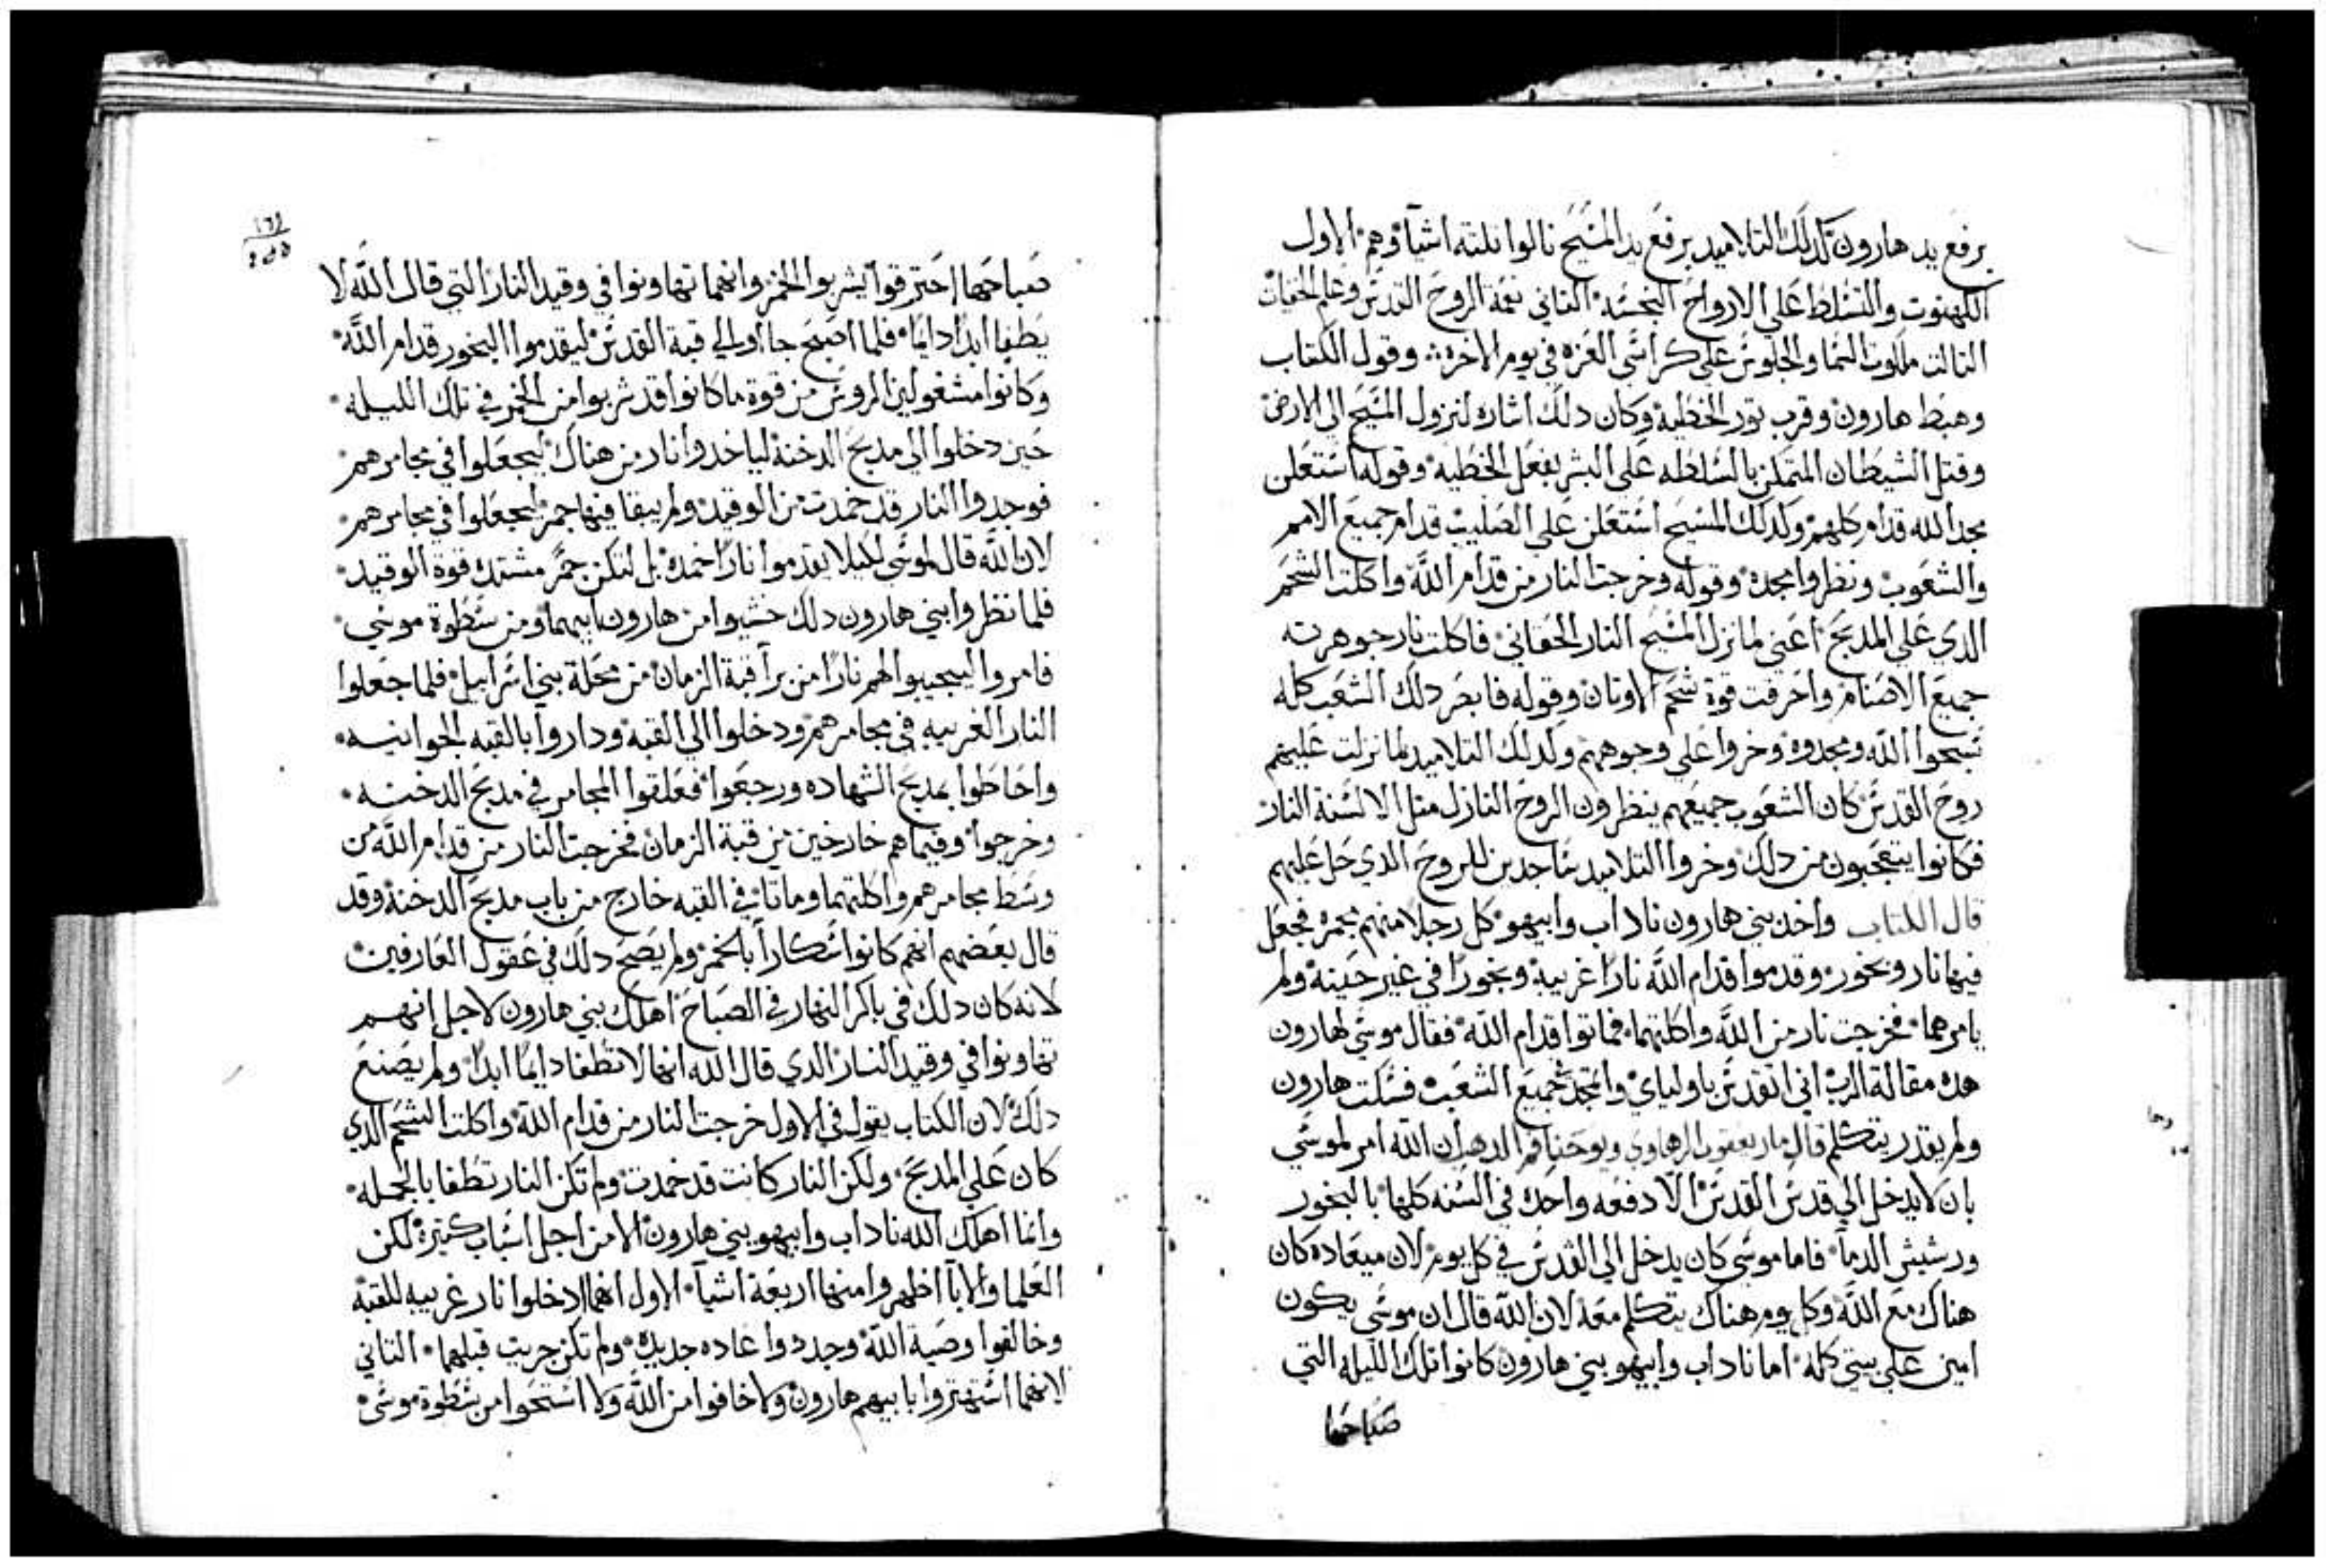 برفع يد هارون كدلك التلاميد برفع يد المسيح نالوا تلته اشيا وهم الاول
الكهنوت والتسلط علي الارواح النجسه التاني نعمة الروح القدس وعلم الخفيات
التالت ملكوت السما والجلوس علي كراسي العزه في يوم الاخره وقول الكتاب
وهبط هارون وقرب تور الخطيه وكان دلك اشاره لنزول المسيح الي الارض
وقتل الشيطان المتملك بالسلطه علي البشر بفعل الخطيه وقوله استعلن
مجد الله قدام كلهم وكدلك المسيح استعلن علي الصليب قدام جميع الامم
والشعوب ونظروا مجده وقوله وخرجت النار من قدام الله واكلت الشحم
الدي علي المدبح اعني لما نزل المسيح النار الحقاني فاكلت نار جوهرته
جميع الاصنام واحرقت قوة شحم الاوتان وقوله فابصر دلك الشعب كله
سبحوا الله ومجدوه وخروا علي وجوههم وكدلك التلاميد لما نزلت عليهم
روح القدس كان الشعوب جميعهم ينظرون الروح النازل متل الالسنة النار
فكانوا يتعجبون من دلك وخروا التلاميد ساجدين للروح الدي حل عليهم
قال الكتاب واخد بني هارون ناداب وابيهو كل رجلا منهم مجمره فجعل
فيها نار وبخور وقدموا قدام الله نارا غريبة وبخورا في غير حينة ولم
يامرهما فخرجت نار من الله واكلتهما فماتوا قدام الله فقال موسي لهارون
هده مقالة الرب اني اتقدس باولياي واتمجد بجميع الشعب فسكت هارون
ولم يقدر يتكلم قال مار يعقوب الرهاوي ويوحنا فم الدهب ان الله امر لموسي
بان لا يدخل الي قدس القدس الا دفعه واحده في السنه كلها بالبخور
ورشيش الدما فاما موسي كان يدخل الي القدس في كل يوم لان ميعاده كان
هناك مع الله وكل يوم هناك يتكلم معه لان الله قال ان موسي يكون
امين علي بيتي كله اما ناداب وابيهو بني هارون كانوا تلك الليله التي
صباحها
صباحها احترقوا يشربوا الخمر وانهما تهاونوا في وقيد النار التي قال الله لا
يطفا ابدا دايما فلما اصبح جااو الي قبة القدس ليقدموا البخور قدام الله
وكانوا مشغولين الروس من قوة ما كانوا قد شربوا من الخمر في تلك الليله
حين دخلوا الي مدبح الدخنة لياخدوا نار من هناك ليجعلوا في مجامرهم
فوجدوا النار قد خمدت من الوقيد ولم يبقا فيها جمر ليجعلوا في مجامرهم
لان الله قال لموسي لكيلا يقدموا نارا خمده بل لتكن جمر مشتده قوة الوقيد
فلما نظروا ابني هارون دلك خشيوا من هارون ابيهما ومن سطوة موسي
فامروا ليجيبوا لهم نارا من برا قبة الزمان من محلة بني اسراييل فلما جعلوا
النار الغريبه في مجامرهم ودخلوا الي القبه وداروا بالقبه الجوانيه
واحاطوا بمدبح الشهاده ورجعوا فعلقوا المجامر في مدبح الدخنه
وخرجوا وفيما هم خارجين من قبة الزمان فخرجت النار من قدام الله من
وسط مجامرهم واكلتهما وماتا في القبه خارج من باب مدبح الدخنة وقد
قال بعضهم انهم كانوا سكارا بالخمر ولم يصح دلك في عقول العارفين
لانه كان دلك في باكر النهار في الصباح اهلك بني هارون لاجل انهم
تهاونوا في وقيد النار الدي قال الله انها لا تطفا دايما ابدا ولم يصنع
دلك لان الكتاب يقول في الاول خرجت النار من قدام الله واكلت الشحم الدي
كان علي المدبح ولكن النار كانت قد خمدت ولم تكن النار تطفا بالجمله
وانما اهلك الله ناداب وابيهو بني هارون الا من اجل اسباب كتيرة لكن
العلما والابا اظهروا منها اربعة اشيا الاول انهما ادخلوا نار غريبه للقبة
وخالفوا وصية الله وجددوا عاده جديده ولم تكن جريت قبلهما التاني
لانهما استهتروا بابيهم هارون ولا خافوا من الله ولا استحوا من سطوة موسي